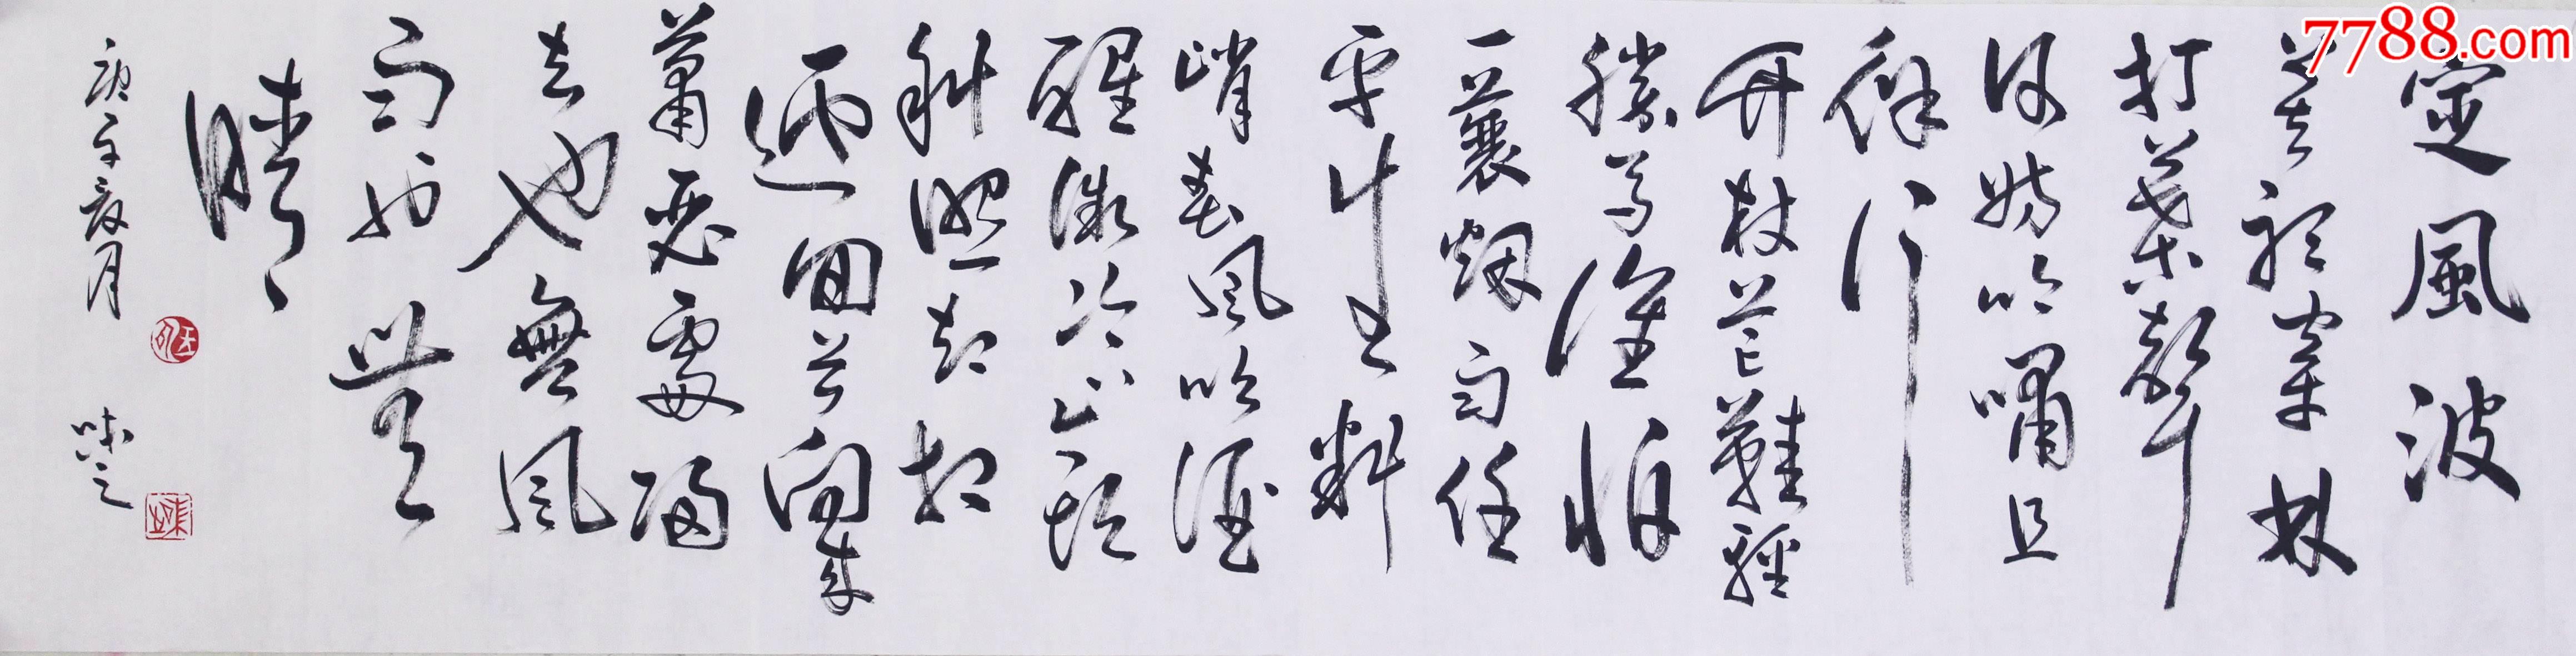 7788.com
定風波
莫聽穿林
打葉聲
何妨吟嘯且
徐行
竹杖芒鞋輕
勝馬誰怕
一蓑烟雨任
平生料
峭春風吹酒
醒微冷山頭
斜照却相
迎回首向來
蕭瑟處歸
去也無風
雨也無
晴
庚子夏月